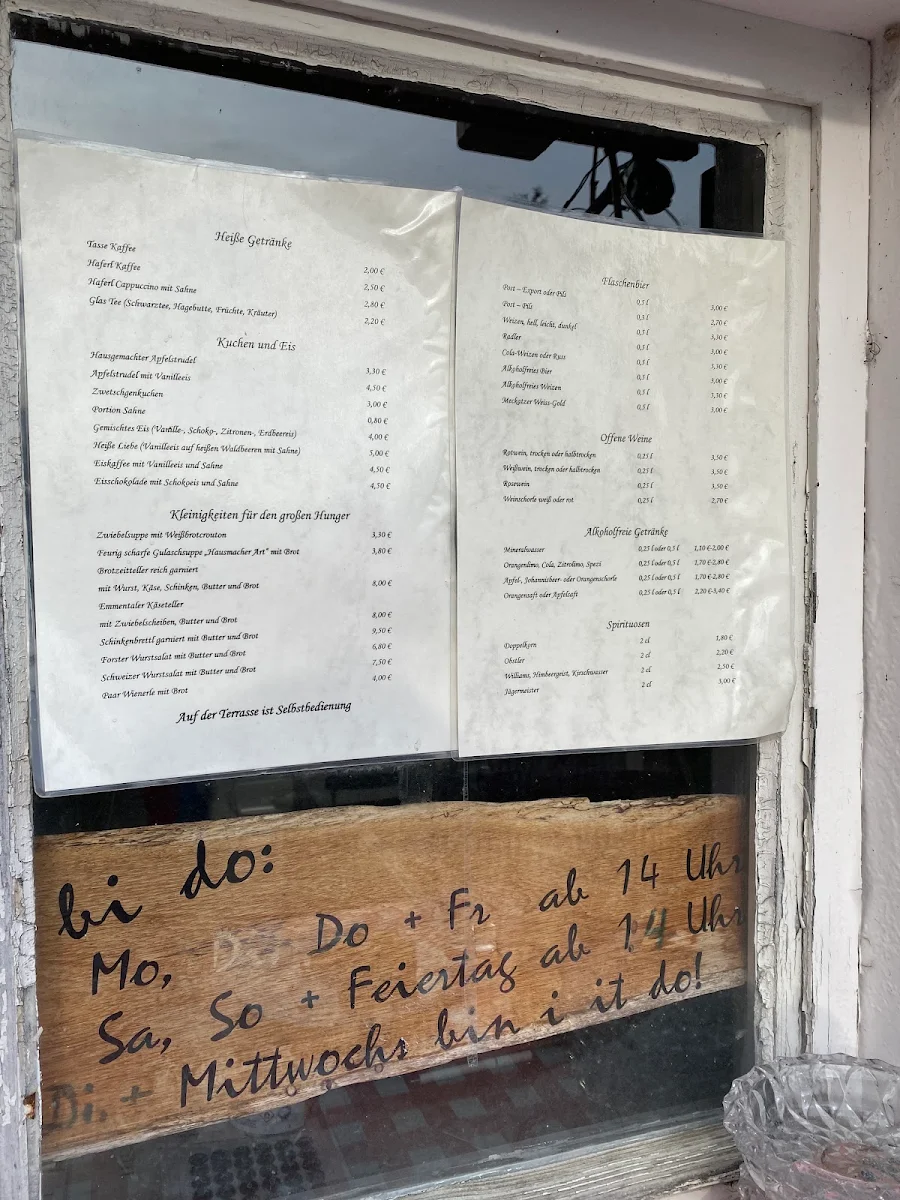 Heiße Getränke
Tasse Kaffee 2,00 €
Haferl Kaffee 2,50 €
Haferl Cappuccino mit Sahne 2,80 €
Glas Tee (Schwarztee, Hagebutte, Früchte, Kräuter) 2,20 €
Kuchen und Eis
Hausgemachter Apfelstrudel 3,30 €
Apfelstrudel mit Vanilleeis 4,50 €
Zwetschgenkuchen 3,00 €
Portion Sahne 0,80 €
Gemischtes Eis (Vanille-, Schoko-, Zitronen-, Erdbeereis) 4,00 €
Heiße Liebe (Vanilleeis auf heißen Waldbeeren mit Sahne) 5,00 €
Eiskaffee mit Vanilleeis und Sahne 4,50 €
Eisschokolade mit Schokoeis und Sahne 4,50 €
Kleinigkeiten für den großen Hunger
Zwiebelsuppe mit Weißbrotcrouton 3,30 €
Feurig scharfe Gulaschsuppe „Hausmacher Art" mit Brot 3,80 €
Brotzeitteller reich garniert
mit Wurst, Käse, Schinken, Butter und Brot 8,00 €
Emmentaler Käseteller
mit Zwiebelscheiben, Butter und Brot 8,00 €
Schinkenbrettl garniert mit Butter und Brot 9,50 €
Forster Wurstsalat mit Butter und Brot 6,80 €
Schweizer Wurstsalat mit Butter und Brot 7,50 €
Paar Wienerle mit Brot 4,00 €
Auf der Terrasse ist Selbstbedienung
Flaschenbier
Post – Export oder Pils 0,5 l 3,00 €
Post – Pils 0,3 l 2,70 €
Weizen, hell, leicht, dunkel 0,5 l 3,30 €
Radler 0,5 l 3,00 €
Cola-Weizen oder Russ 0,5 l 3,30 €
Alkoholfreies Bier 0,5 l 3,00 €
Alkoholfreies Weizen 0,5 l 3,30 €
Meckatzer Weiss-Gold 0,5 l 3,00 €
Offene Weine
Rotwein, trocken oder halbtrocken 0,25 l 3,50 €
Weißwein, trocken oder halbtrocken 0,25 l 3,50 €
Rosewein 0,25 l 3,50 €
Weinschorle weiß oder rot 0,25 l 2,70 €
Alkoholfreie Getränke
Mineralwasser 0,25 l oder 0,5 l 1,10 €-2,00 €
Orangenlimo, Cola, Zitrolimo, Spezi 0,25 l oder 0,5 l 1,70 €-2,80 €
Apfel-, Johannisbeer- oder Orangenschorle 0,25 l oder 0,5 l 1,70 €-2,80 €
Orangensaft oder Apfelsaft 0,25 l oder 0,5 l 2,20 €-3,40 €
Spirituosen
Doppelkorn 2 cl 1,80 €
Obstler 2 cl 2,20 €
Williams, Himbeergeist, Kirschwasser 2 cl 2,50 €
Jägermeister 2 cl 3,00 €
bi do:
Mo, Do + Fr ab 14 Uhr
Sa, So + Feiertag ab 14 Uhr
Di. + Mittwochs bin i it do!